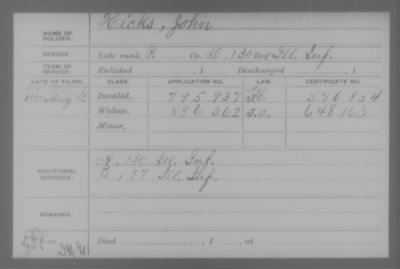 NAME OF SOLDIER: Hicks, John
SERVICE: Late rank, P. Co. D, 130 Reg't Ill. Inf.
TERM OF SERVICE: Enlisted , 1 Discharged , 1
DATE OF FILING. CLASS. APPLICATION NO. LAW. CERTIFICATE NO.
Invalid, 795 937 576 854
Widow, 886 362 648 163
Minor,
ADDITIONAL SERVICES: A, 130 Ill. Inf.
E, 77 Ill. Inf.
REMARKS:
Died , 1 , at